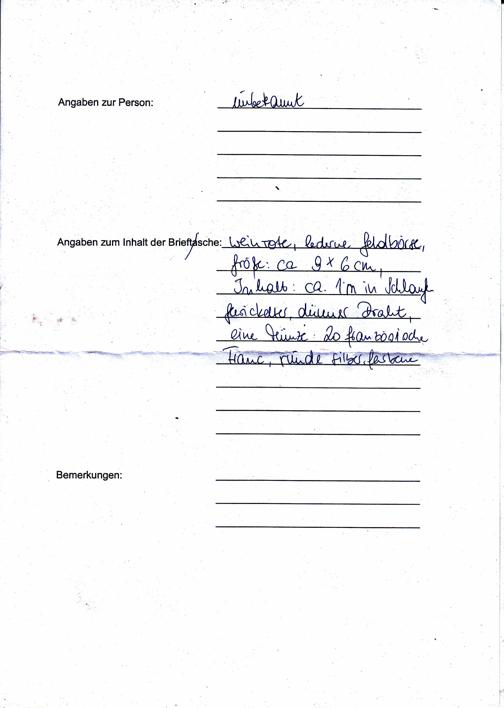 Angaben zur Person: unbekannt
Angaben zum Inhalt der Brieftasche: weinrote, lederne Geldbörse,
Größe: ca 9 x 6 cm,
Inhalt: ca. 1 m in Schlauf
gewickelter, dünner Draht,
eine Münze: 20 französische
Franc, runde silberfarbene
Bemerkungen: